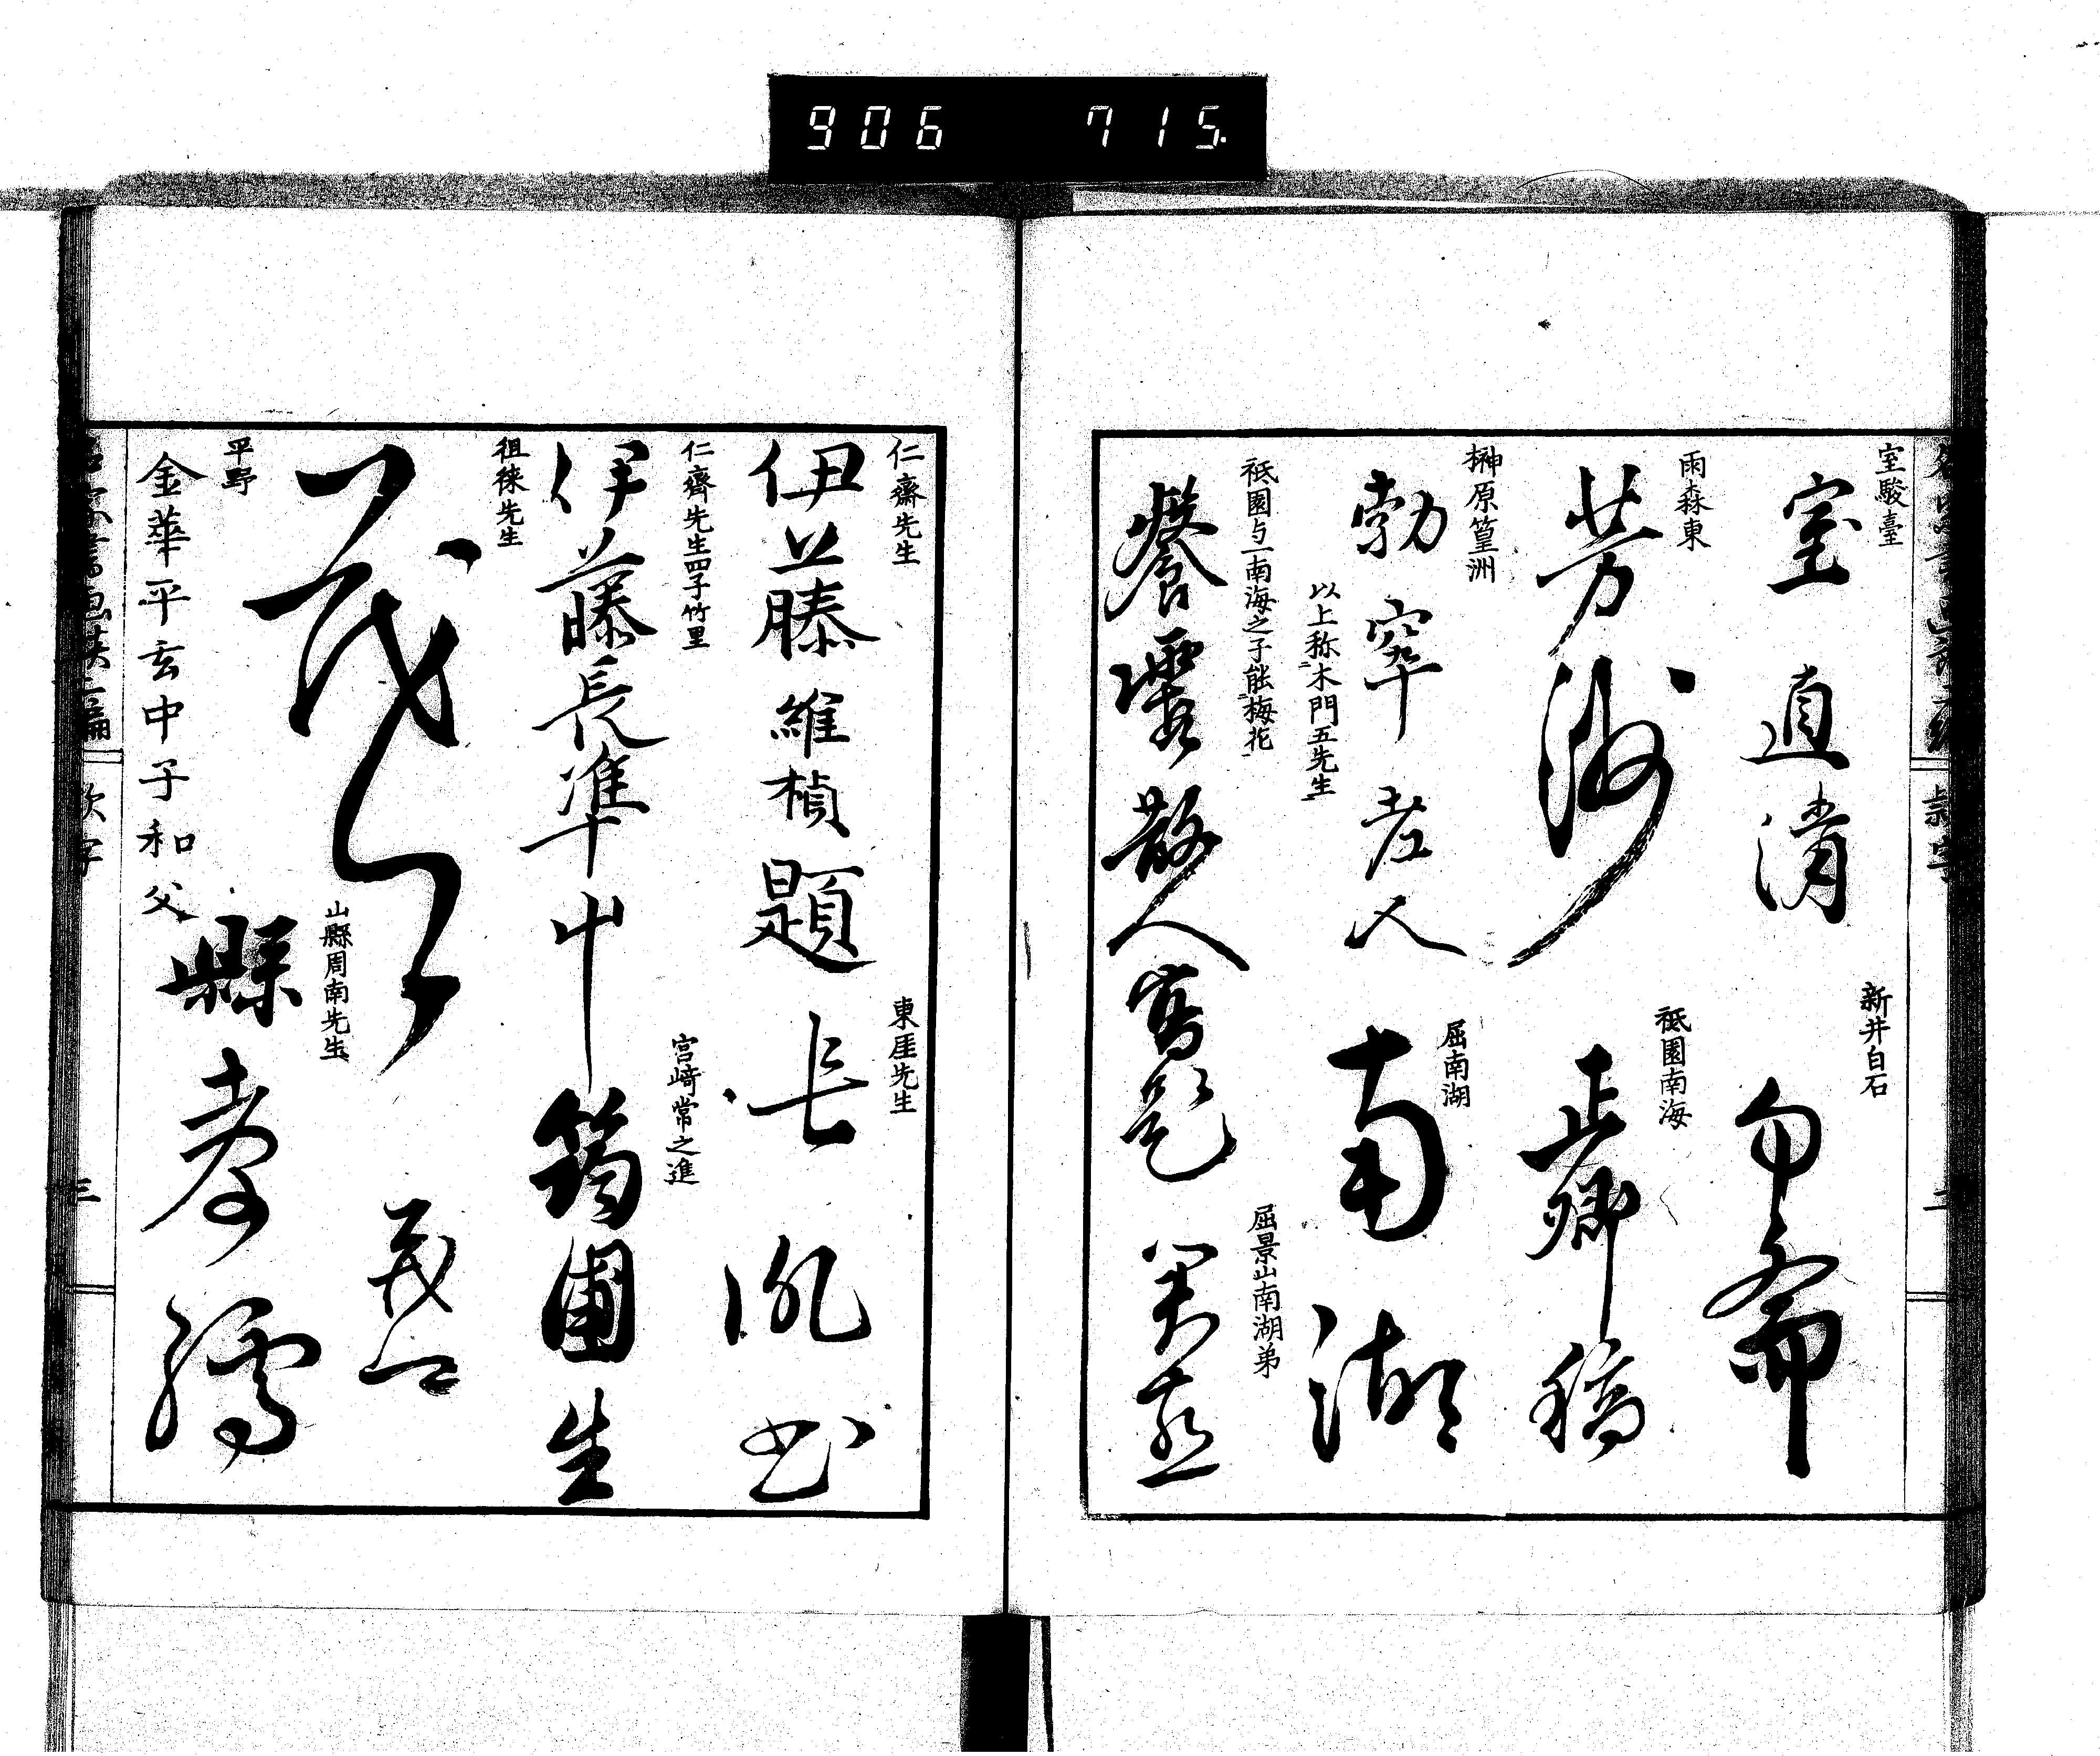 906 715
室駿臺
室直清
新井白石
勿齋
雨森東
芳洲
祇園南海
正卿稿
榊原篁洲
勃窣老人
以上称木門五先生
屈南湖
南湖
祇園与一南海之子能梅花
餐霞散人寫
屈景山南湖弟
仁齋先生
伊藤維楨題
東厓先生
長胤書
仁齋先生四子竹里
伊藤長準
宮崎常之進
筠圃生
徂徠先生
茂卿
山縣周南先生
縣孝孺
平野
金華平玄中子和父
款字
三